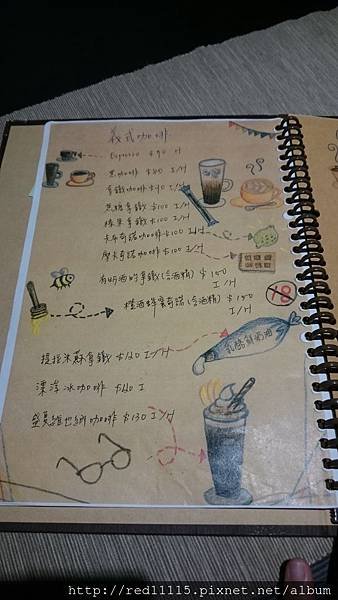 義式咖啡
Espresso $90 H
黑咖啡 $80 I/H
拿鐵咖啡 $90 I/H
焦糖拿鐵 $100 I/H
榛果拿鐵 $100 I/H
卡布奇諾咖啡 $100 I/H
摩卡奇諾咖啡 $100 I/H
有奶酒的拿鐵(含酒精) $150
I/H
橙酒蜂蜜奇諾(含酒精) $150
I/H
18
乳酪鮮奶油
提拉米蘇拿鐵 $120 I/H
漂浮冰咖啡 $120 I
盛夏維也納咖啡 $130 I/H
http://red11115.pixnet.net/album